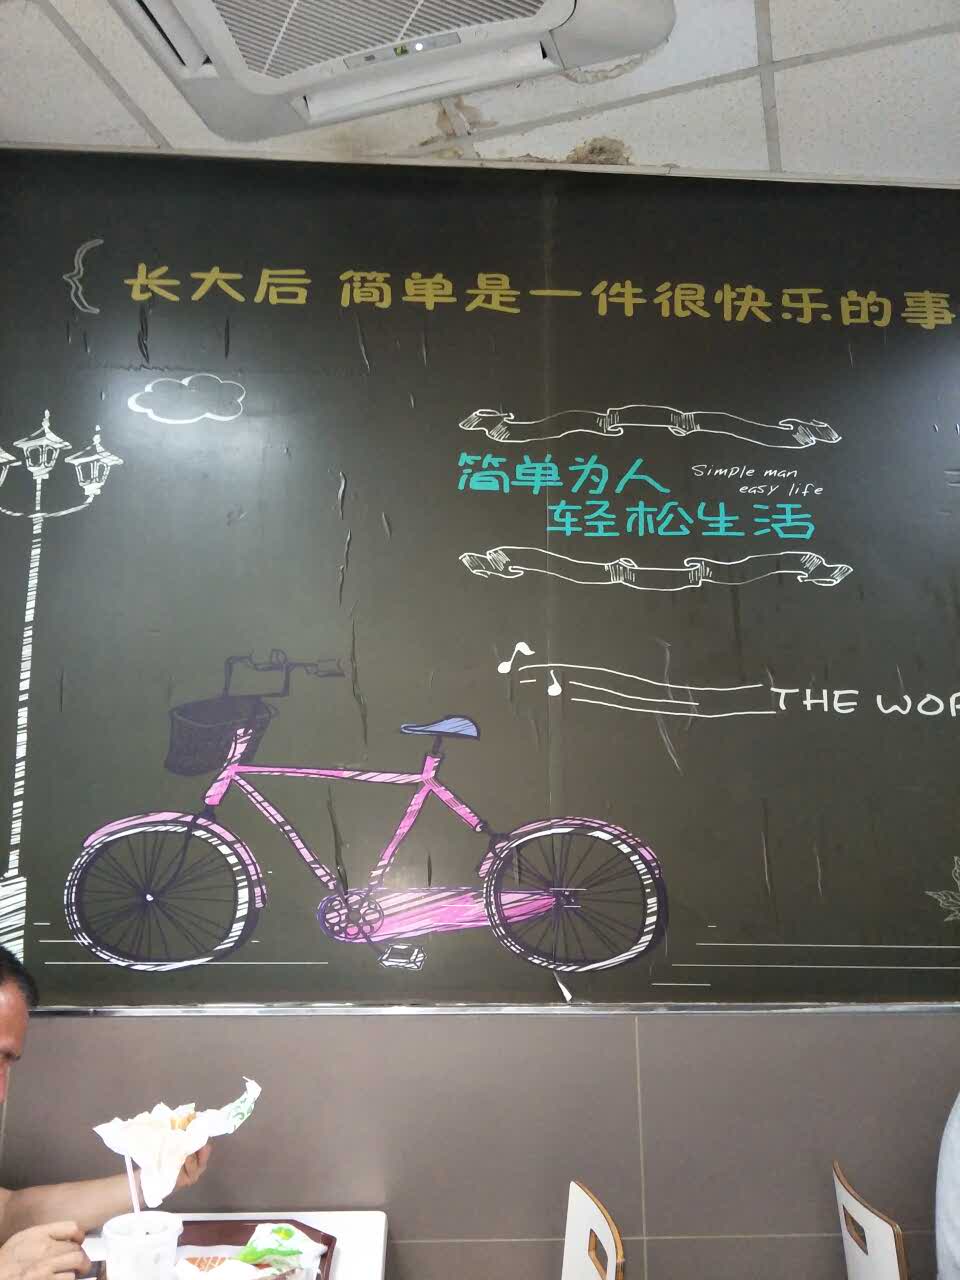 长大后 简单是一件很快乐的事
简单为人
Simple man
easy life
轻松生活
THE